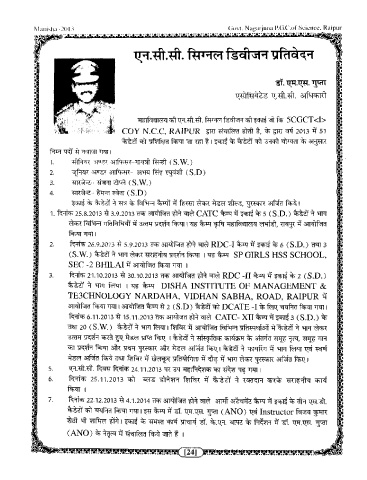 Manisha-2013 Govt. Nagarjuna P.G.C. of Science, Raipur
एन.सी.सी. सिग्नल डिवीजन प्रतिवेदन
डॉ. एम.एस. गुप्ता
एसोसिएटेड ए.सी.सी. अधिकारी
महाविद्यालय की एन.सी.सी. सिग्नल डिवीजन की इकाई जो कि 5CGCT<I>
COY N.C.C, RAIPUR द्वारा संचालित होती है, के द्वारा वर्ष 2013 में 51
कैडेटों को प्रशिक्षित किया जा रहा है। इकाई के कैडेटों को उसकी योग्यता के अनुसार
निम्न पदों से नवाजा गया।
1. सीनियर अण्डर आफिसर- गायत्री सिन्हा (S.W.)
2. जूनियर अण्डर आफिसर- अभय सिंह रघुवंशी (S.D)
3. सारजेन्ट- संध्या टोप्पो (S.W.)
4. सारजेन्ट- हेमन्त श्वेता (S.D)
इकाई के कैडेटों ने सत्र के विभिन्न कैम्पों में हिस्सा लेकर मेडल शील्ड, पुरस्कार अर्जित किये।
1. दिनांक 25.8.2013 से 3.9.2013 तक आयोजित होने वाले CATC कैम्प में इकाई के 5 (S.D.) कैडेटों ने भाग
लेकर विभिन्न गतिविधियों में उत्तम प्रदर्शन किया। यह कैम्प कृषि महाविद्यालय लभांडी, रायपुर में आयोजित
किया गया।
2. दिनांक 26.9.2013 से 5.9.2013 तक आयोजित होने वाले RDC-I कैम्प में इकाई के 6 (S.D.) तथा 3
(S.W.) कैडेटों ने भाग लेकर सराहनीय प्रदर्शन किया । यह कैम्प SP GIRLS HSS SCHOOL,
SEC -2 BHILAI में आयोजित किया गया ।
3. दिनांक 21.10.2013 से 30.10.2013 तक आयोजित होने वाले RDC -II कैम्प में इकाई के 2 (S.D.)
कैडेटों ने भाग लिया । यह कैम्प DISHA INSTITUTE OF MANAGEMENT &
TE3CHNOLOGY NARDAHA, VIDHAN SABHA, ROAD, RAIPUR में
आयोजित किया गया। आयोजित कैम्प से 2 (S.D) कैडेटों को DCATE -I के लिए चयनित किया गया।
दिनांक 6.11.2013 से 15.11.2013 तक आयोजन होने वाले CATC- XII कैम्प में इकाई 3 (S.D.) के
तथा 20 (S.W.) कैडेटों ने भाग लिया। शिविर में आयोजित विभिन्न प्रतिस्पर्धाओं में कैडेटों ने भाग लेकर
उत्तम प्रदर्शन करते हुए मेडल प्राप्त किए । कैडेटों ने सांस्कृतिक कार्यक्रम के अंतर्गत समूह नृत्य, समूह गान
का प्रदर्शन किया और प्रथम पुरस्कार और मेडल अर्जित किए। कैडेटों ने फायरिंग में भाग लिया एवं स्वर्ण
मेडल अर्जित किये तथा शिविर में खेलकूद प्रतियोगिता में दौड़ में भाग लेकर पुरस्कार अर्जित किए।
5. एन.सी.सी. दिवस दिनांक 24.11.2013 पर उप महानिदेशक का संदेश पढ़ा गया।
6. दिनांक 25.11.2013 को ब्लड डोनेशन शिविर में कैडेटों ने रक्तदान करके सराहनीय कार्य
किया ।
7. दिनांक 22.12.2013 से 4.1.2014 तक आयोजित होने वाले आर्मी अटेचमेंट कैम्प में इकाई के तीन एस.डी.
कैडेटों को चयनित किया गया। इस कैम्प में डॉ. एम.एस. गुप्ता (ANO) एवं Instructor विजय कुमार
सेठी भी शामिल होंगे। इकाई के समस्त कार्य प्राचार्य डॉ. के.एन. बापट के निर्देशन में डॉ. एम.एस. गुप्ता
(ANO) के नेतृत्व में संचालित किये जाते हैं ।
[24]